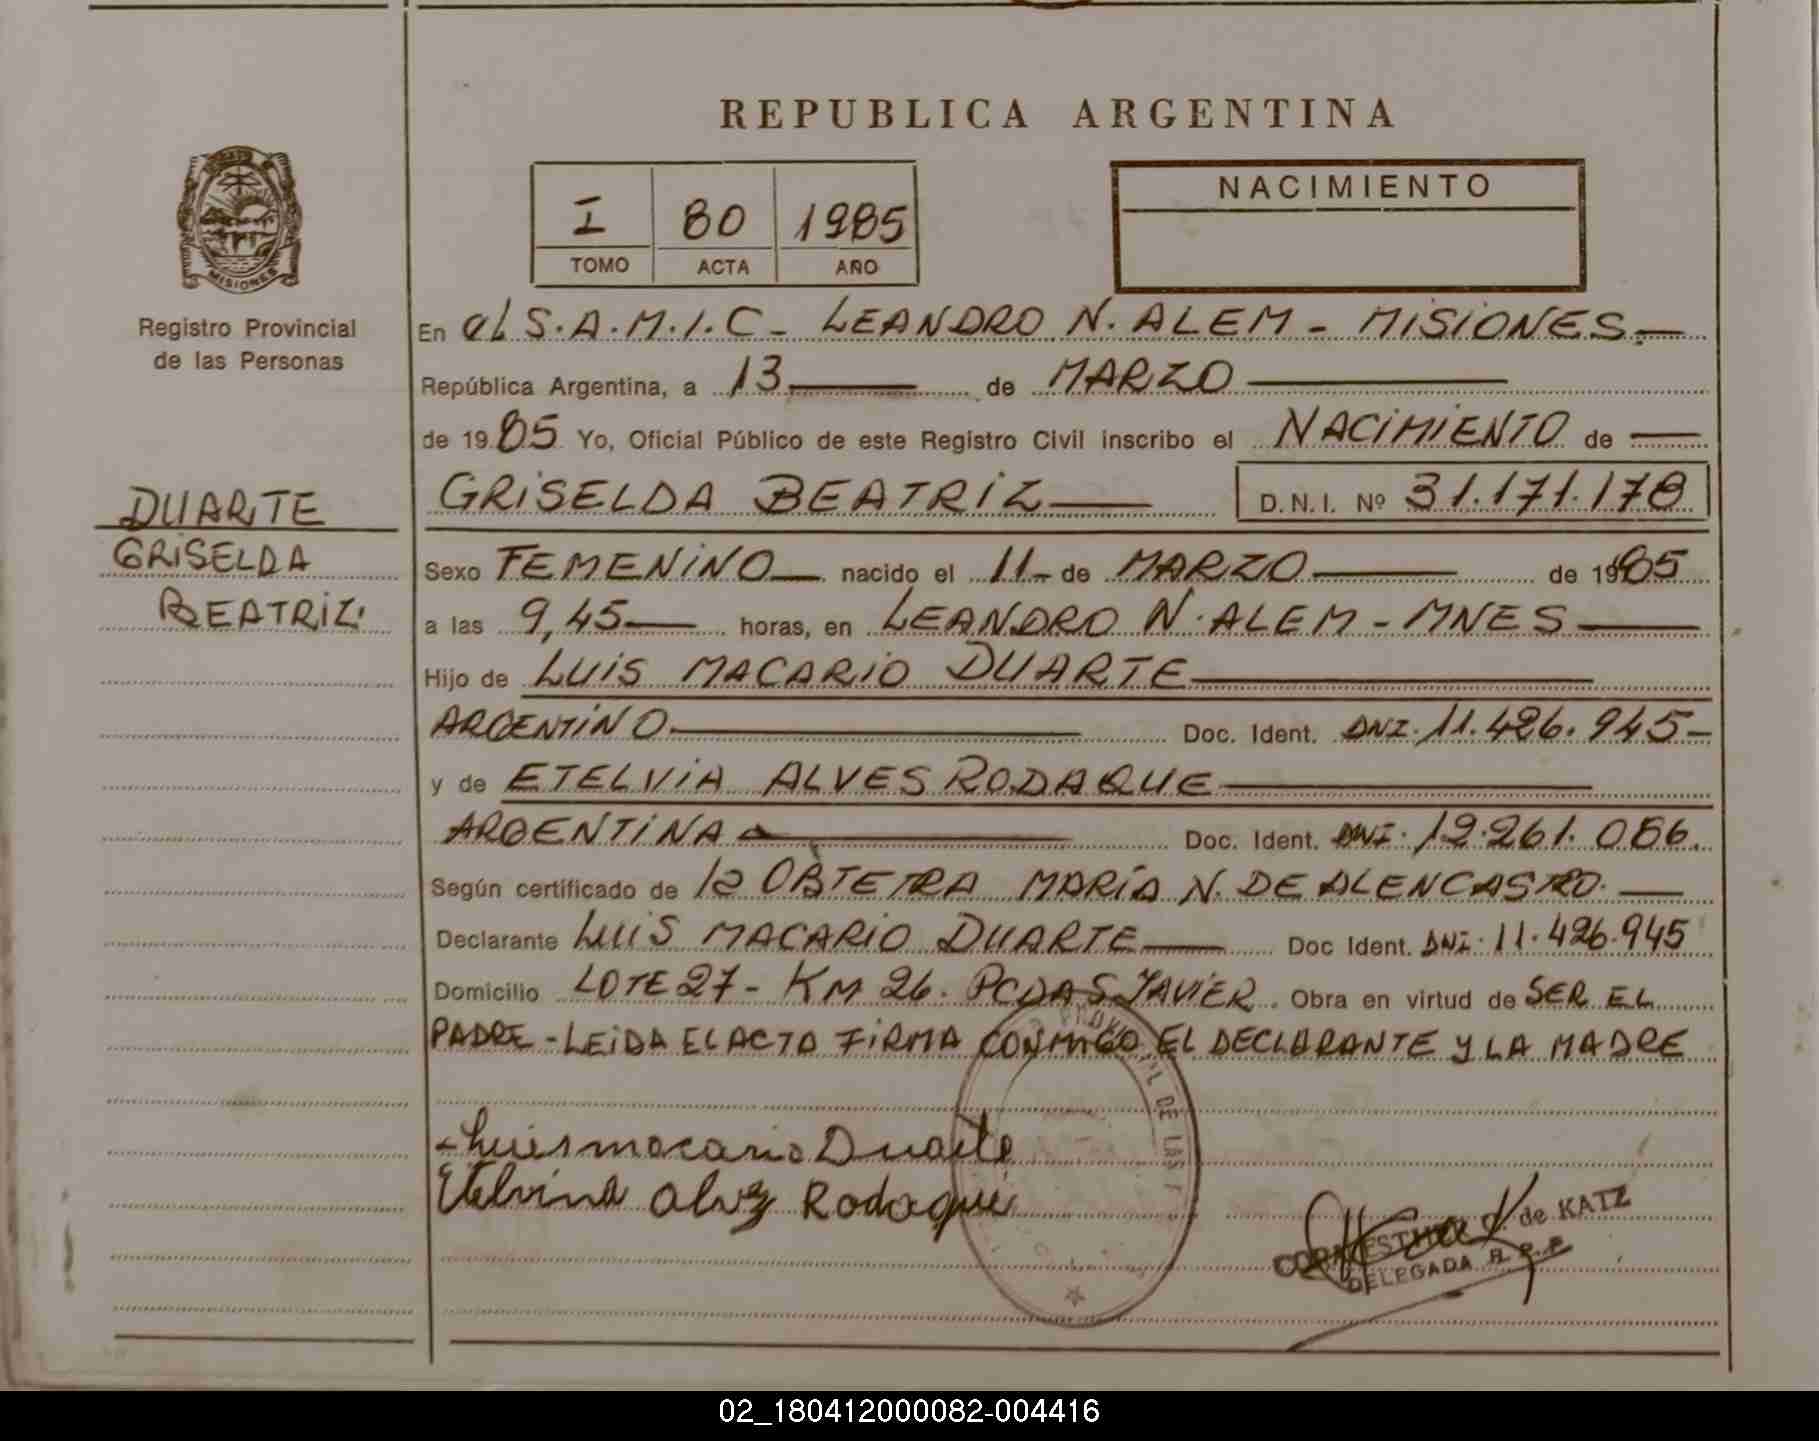 REPUBLICA ARGENTINA
I 80 1985
TOMO ACTA AÑO
NACIMIENTO
MISIONES
Registro Provincial
de las Personas
DUARTE
GRISELDA
BEATRIZ
En el S.A.M.I.C - LEANDRO N. ALEM - MISIONES.
República Argentina, a 13 de MARZO
de 1985 Yo, Oficial Público de este Registro Civil inscribo el NACIMIENTO de
GRISELDA BEATRIZ D.N.I. Nº 31.171.178
Sexo FEMENINO nacido el 11 - de MARZO de 1985
a las 9,45 horas, en LEANDRO N. ALEM - MNES
Hijo de LUIS MACARIO DUARTE
ARGENTINO Doc. Ident. DNI. 11.426.945 -
y de ETELVIA ALVES RODAQUE
ARGENTINA Doc. Ident. DNI. 12.261.086.
Según certificado de la OBTETRA MARÍA N. DE ALENCASTRO.
Declarante LUIS MACARIO DUARTE Doc Ident. DNI: 11.426.945
Domicilio LOTE 27 - KM 26. PCDAS JAVIER. Obra en virtud de SER EL
PADRE - LEIDA EL ACTA FIRMA CONMIGO EL DECLARANTE Y LA MADRE
Luis macario Duarte
Etelvina Alvez Rodaqué
DE LAS
de KATZ
DELEGADA R.P.P
02_180412000082-004416